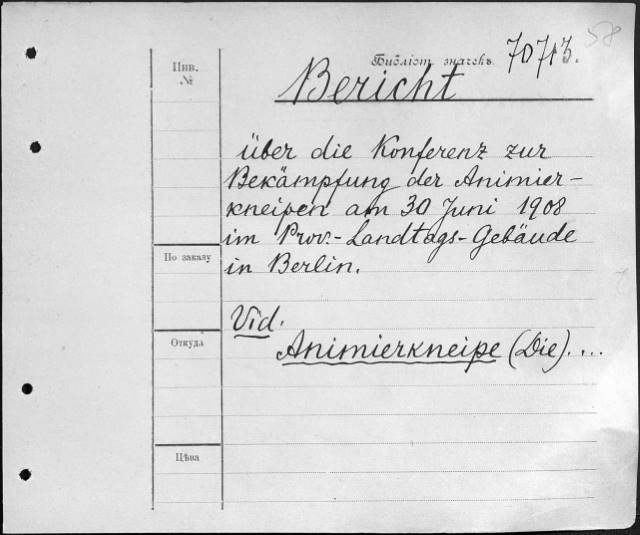 58
Библіот. значекъ 70713.
Инв.
№
Bericht
über die Konferenz zur
Bekämpfung der Animier-
kneipen am 30 Juni 1908
im Prov.-Landtags-Gebäude
По заказу
in Berlin.
Vid.
Откуда
Animierkneipe (Die)....
Цѣна